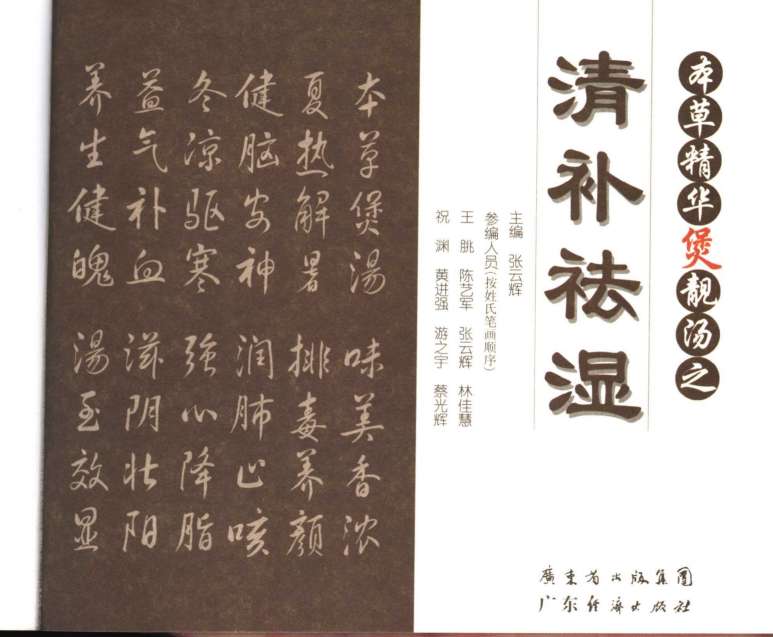 本草精华煲靓汤之
清补祛湿
主编 张云辉
参编人员(按姓氏笔画顺序)
王朓 陈艺军 张云辉 林佳慧
祝渊 黄进强 游之宇 蔡光辉
本草煲湯 味美香浓
夏热解暑 排毒养顔
健脑安神 润肺止咳
冬凉驱寒 強心降脂
益气补血 滋阴壮阳
养生健魄 湯至效显
廣東省出版集團
广东经济出版社